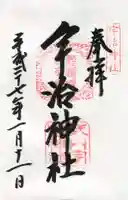 奉拝
宇治神社
平成二十七年一月十一日